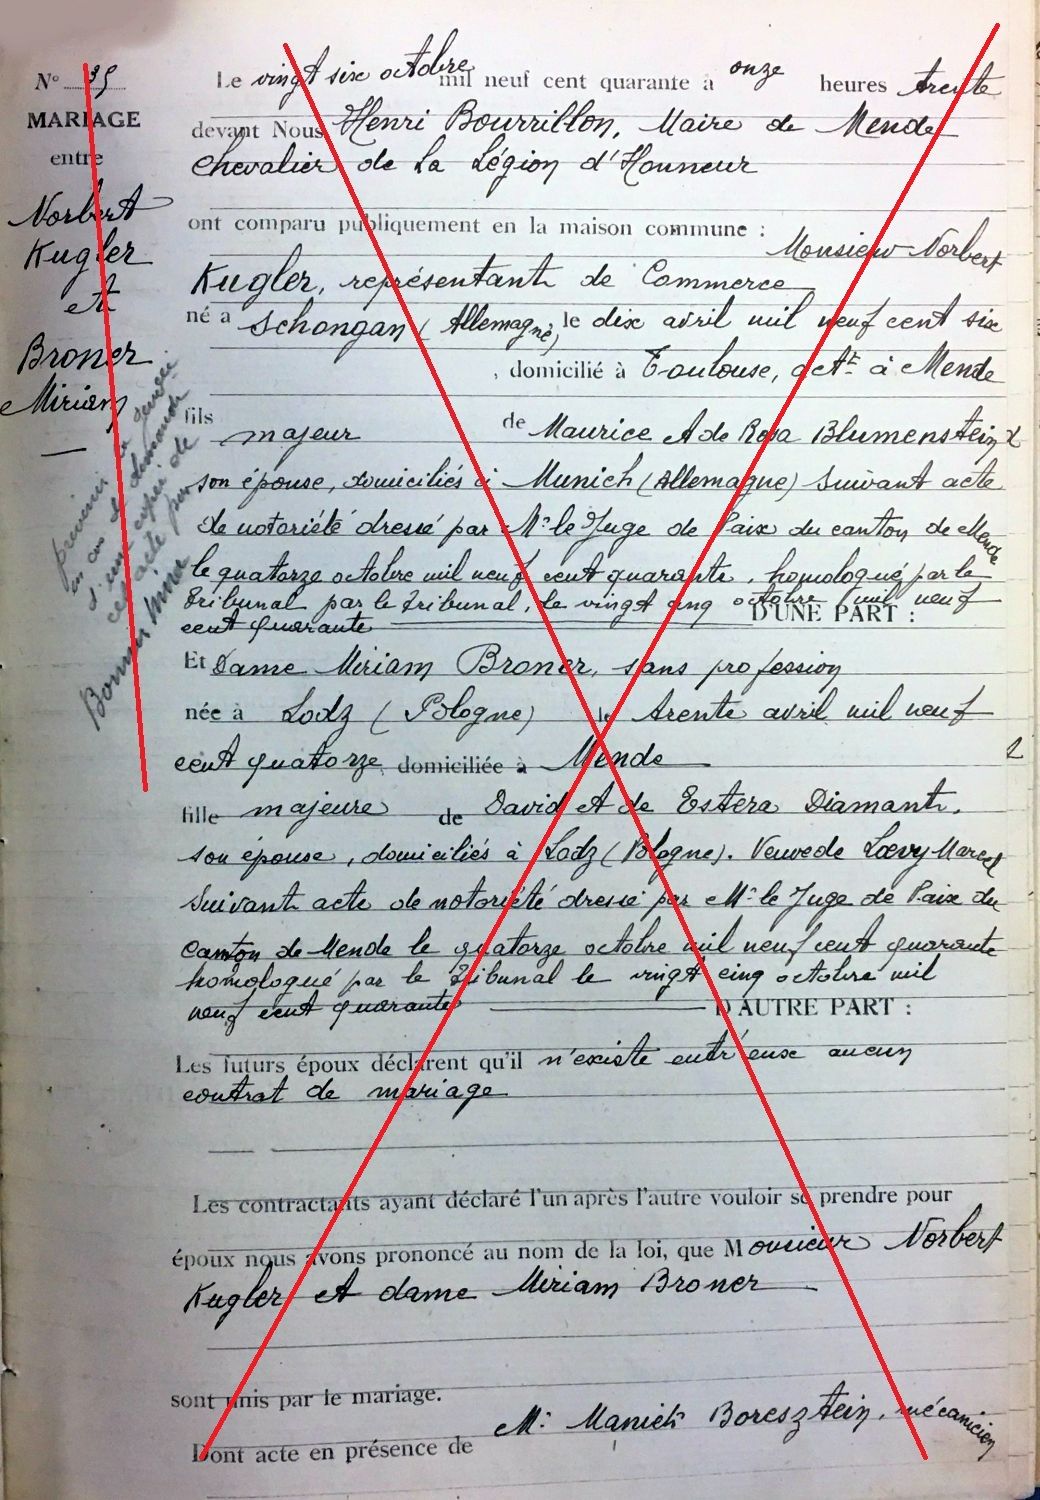 N° 35
MARIAGE
entre
Norbert
Kugler
et
Broner
Miriam
Le vingt six octobre mil neuf cent quarante à onze heures trente
devant Nous Henri Bourrillon, Maire de Mende
chevalier de la Légion d'Honneur
ont comparu publiquement en la maison commune : Monsieur Norbert
Kugler, représentant de Commerce
né à Schongau (Allemagne) le dix avril mil neuf cent six
, domicilié à Toulouse, actt à Mende
fils majeur de Maurice et de Rosa Blumenstein
son épouse, domiciliés à Munich (Allemagne) suivant acte
de notoriété dressé par Mr le Juge de Paix du canton de Mende
le quatorze octobre mil neuf cent quarante, homologué par le
Tribunal par le Tribunal, le vingt cinq octobre mil neuf
cent quarante D'UNE PART :
Et Dame Miriam Broner, sans profession
née à Lodz (Pologne) le trente avril mil neuf
cent quatorze domiciliée à Mende
fille majeure de David et de Estera Diamant,
son épouse, domiciliés à Lodz (Pologne). Veuve de Lœvy Marcel
suivant acte de notoriété dressé par Mr le Juge de Paix du
canton de Mende le quatorze octobre mil neuf cent quarante
homologué par le Tribunal le vingt cinq octobre mil
neuf cent quarante D'AUTRE PART :
Les futurs époux déclarent qu'il n'existe entr'eux aucun
contrat de mariage
Les contractants ayant déclaré l'un après l'autre vouloir se prendre pour
époux nous avons prononcé au nom de la loi, que Monsieur Norbert
Kugler et dame Miriam Broner
sont unis par le mariage.
Dont acte en présence de Mr ManiekBoresztein, mécanicien